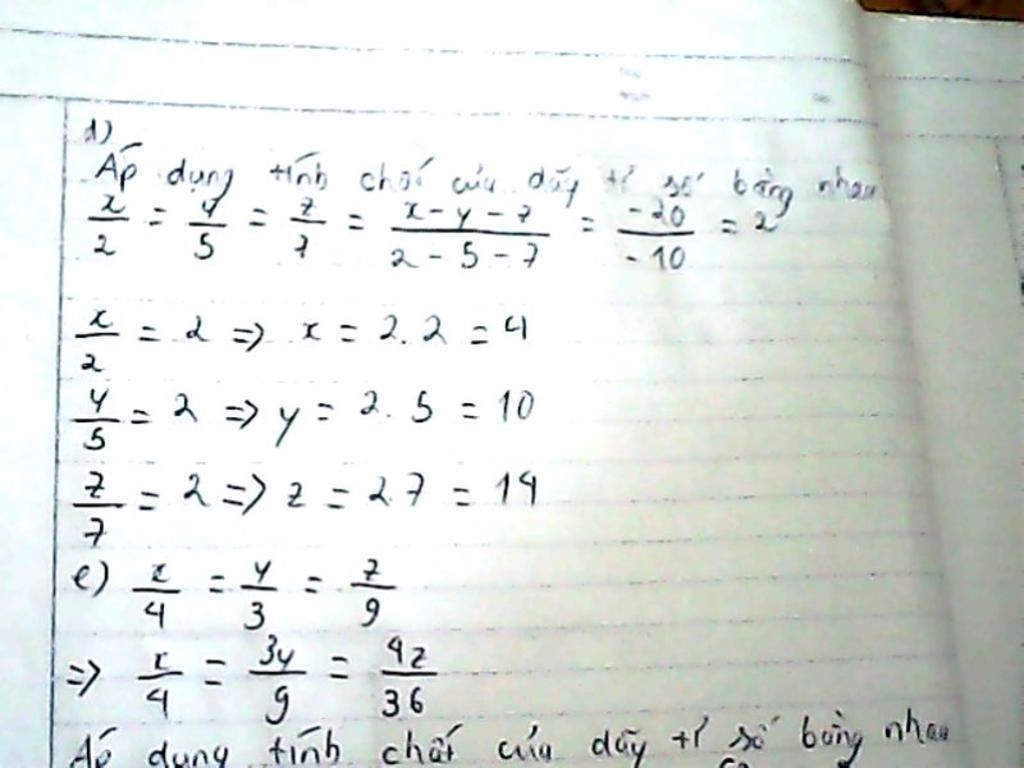 d)
Áp dụng tính chất của dãy tỉ số bằng nhau
x/2 = y/5 = z/7 = (x - y - z)/(2 - 5 - 7) = -20/-10 = 2
x/2 = 2 => x = 2.2 = 4
y/5 = 2 => y = 2.5 = 10
z/7 = 2 => z = 2.7 = 14
e) x/4 = y/3 = z/9
=> x/4 = 3y/9 = 4z/36
Áp dụng tính chất của dãy tỉ số bằng nhau